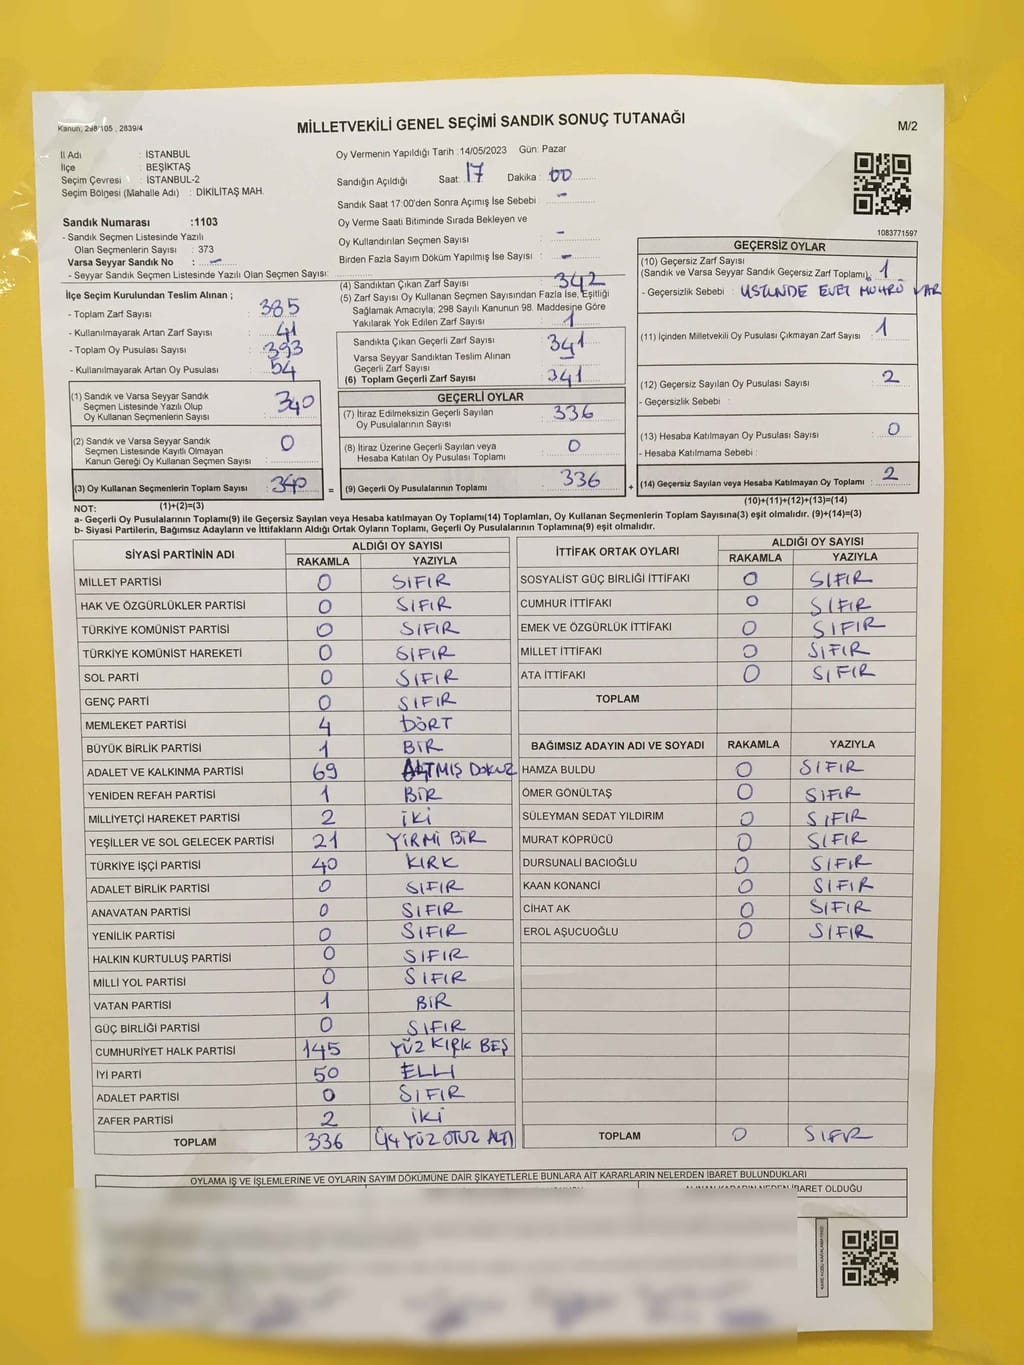 Kanun, 298/105 , 2839/4
MİLLETVEKİLİ GENEL SEÇİMİ SANDIK SONUÇ TUTANAĞI
M/2
İl Adı : İSTANBUL
İlçe : BEŞİKTAŞ
Seçim Çevresi : İSTANBUL-2
Seçim Bölgesi (Mahalle Adı) : DİKİLİTAŞ MAH.
Oy Vermenin Yapıldığı Tarih :14/05/2023 Gün: Pazar
Sandığın Açıldığı Saat: 17 Dakika : 00
Sandık Saat 17:00'den Sonra Açımış İse Sebebi : -
Oy Verme Saati Bitiminde Sırada Bekleyen ve
Oy Kullandırılan Seçmen Sayısı : -
Birden Fazla Sayım Döküm Yapılmış İse Sayısı : -
Sandık Numarası :1103
- Sandık Seçmen Listesinde Yazılı
Olan Seçmenlerin Sayısı : 373
Varsa Seyyar Sandık No : -
- Seyyar Sandık Seçmen Listesinde Yazılı Olan Seçmen Sayısı:
İlçe Seçim Kurulundan Teslim Alınan ;
- Toplam Zarf Sayısı : 385
- Kullanılmayarak Artan Zarf Sayısı : 41
- Toplam Oy Pusulası Sayısı : 393
- Kullanılmayarak Artan Oy Pusulası : 54
(1) Sandık ve Varsa Seyyar Sandık
Seçmen Listesinde Yazılı Olup
Oy Kullanan Seçmenlerin Sayısı : 340
(2) Sandık ve Varsa Seyyar Sandık
Seçmen Listesinde Kayıtlı Olmayan
Kanun Gereği Oy Kullanan Seçmen Sayısı : 0
(3) Oy Kullanan Seçmenlerin Toplam Sayısı : 340
(4) Sandıktan Çıkan Zarf Sayısı : 342
(5) Zarf Sayısı Oy Kullanan Seçmen Sayısından Fazla İse, Eşitliği
Sağlamak Amacıyla; 298 Sayılı Kanunun 98. Maddesine Göre
Yakılarak Yok Edilen Zarf Sayısı : 1
Sandıkta Çıkan Geçerli Zarf Sayısı : 341
Varsa Seyyar Sandıktan Teslim Alınan
Geçerli Zarf Sayısı : -
(6) Toplam Geçerli Zarf Sayısı : 341
GEÇERLİ OYLAR
(7) İtiraz Edilmeksizin Geçerli Sayılan
Oy Pusulalarının Sayısı : 336
(8) İtiraz Üzerine Geçerli Sayılan veya
Hesaba Katılan Oy Pusulası Toplamı : 0
= (9) Geçerli Oy Pusulalarının Toplamı : 336 +
1083771597
GEÇERSİZ OYLAR
(10) Geçersiz Zarf Sayısı
(Sandık ve Varsa Seyyar Sandık Geçersiz Zarf Toplamı): 1
- Geçersizlik Sebebi : ÜSTÜNDE EVET MÜHRÜ VAR
(11) İçinden Milletvekili Oy Pusulası Çıkmayan Zarf Sayısı : 1
(12) Geçersiz Sayılan Oy Pusulası Sayısı : 2
- Geçersizlik Sebebi :
(13) Hesaba Katılmayan Oy Pusulası Sayısı : 0
- Hesaba Katılmama Sebebi :
(14) Geçersiz Sayılan veya Hesaba Katılmayan Oy Toplamı : 2
NOT: (1)+(2)=(3) (10)+(11)+(12)+(13)=(14)
a- Geçerli Oy Pusulalarının Toplamı(9) ile Geçersiz Sayılan veya Hesaba katılmayan Oy Toplamı(14) Toplamları, Oy Kullanan Seçmenlerin Toplam Sayısına(3) eşit olmalıdır. (9)+(14)=(3)
b- Siyasi Partilerin, Bağımsız Adayların ve İttifakların Aldığı Ortak Oyların Toplamı, Geçerli Oy Pusulalarının Toplamına(9) eşit olmalıdır.
SİYASİ PARTİNİN ADI ALDIĞI OY SAYISI
RAKAMLA YAZIYLA
MİLLET PARTİSİ 0 SIFIR
HAK VE ÖZGÜRLÜKLER PARTİSİ 0 SIFIR
TÜRKİYE KOMÜNİST PARTİSİ 0 SIFIR
TÜRKİYE KOMÜNİST HAREKETİ 0 SIFIR
SOL PARTİ 0 SIFIR
GENÇ PARTİ 0 SIFIR
MEMLEKET PARTİSİ 4 DÖRT
BÜYÜK BİRLİK PARTİSİ 1 BİR
ADALET VE KALKINMA PARTİSİ 69 ALTMIŞ DOKUZ
YENİDEN REFAH PARTİSİ 1 BİR
MİLLİYETÇİ HAREKET PARTİSİ 2 İKİ
YEŞİLLER VE SOL GELECEK PARTİSİ 21 YİRMİ BİR
TÜRKİYE İŞÇİ PARTİSİ 40 KIRK
ADALET BİRLİK PARTİSİ 0 SIFIR
ANAVATAN PARTİSİ 0 SIFIR
YENİLİK PARTİSİ 0 SIFIR
HALKIN KURTULUŞ PARTİSİ 0 SIFIR
MİLLİ YOL PARTİSİ 0 SIFIR
VATAN PARTİSİ 1 BİR
GÜÇ BİRLİĞİ PARTİSİ 0 SIFIR
CUMHURİYET HALK PARTİSİ 145 YÜZ KIRK BEŞ
İYİ PARTİ 50 ELLİ
ADALET PARTİSİ 0 SIFIR
ZAFER PARTİSİ 2 İKİ
TOPLAM 336 ÜÇ YÜZ OTUZ ALTI
İTTİFAK ORTAK OYLARI ALDIĞI OY SAYISI
RAKAMLA YAZIYLA
SOSYALİST GÜÇ BİRLİĞİ İTTİFAKI 0 SIFIR
CUMHUR İTTİFAKI 0 SIFIR
EMEK VE ÖZGÜRLÜK İTTİFAKI 0 SIFIR
MİLLET İTTİFAKI 0 SIFIR
ATA İTTİFAKI 0 SIFIR
TOPLAM
BAĞIMSIZ ADAYIN ADI VE SOYADI RAKAMLA YAZIYLA
HAMZA BULDU 0 SIFIR
ÖMER GÖNÜLTAŞ 0 SIFIR
SÜLEYMAN SEDAT YILDIRIM 0 SIFIR
MURAT KÖPRÜCÜ 0 SIFIR
DURSUNALİ BACIOĞLU 0 SIFIR
KAAN KONANCİ 0 SIFIR
CİHAT AK 0 SIFIR
EROL AŞUCUOĞLU 0 SIFIR
TOPLAM 0 SIFIR
OYLAMA İŞ VE İŞLEMLERİNE VE OYLARIN SAYIM DÖKÜMÜNE DAİR ŞİKAYETLERLE BUNLARA AİT KARARLARIN NELERDEN İBARET BULUNDUKLARI
İBARET OLDUĞU